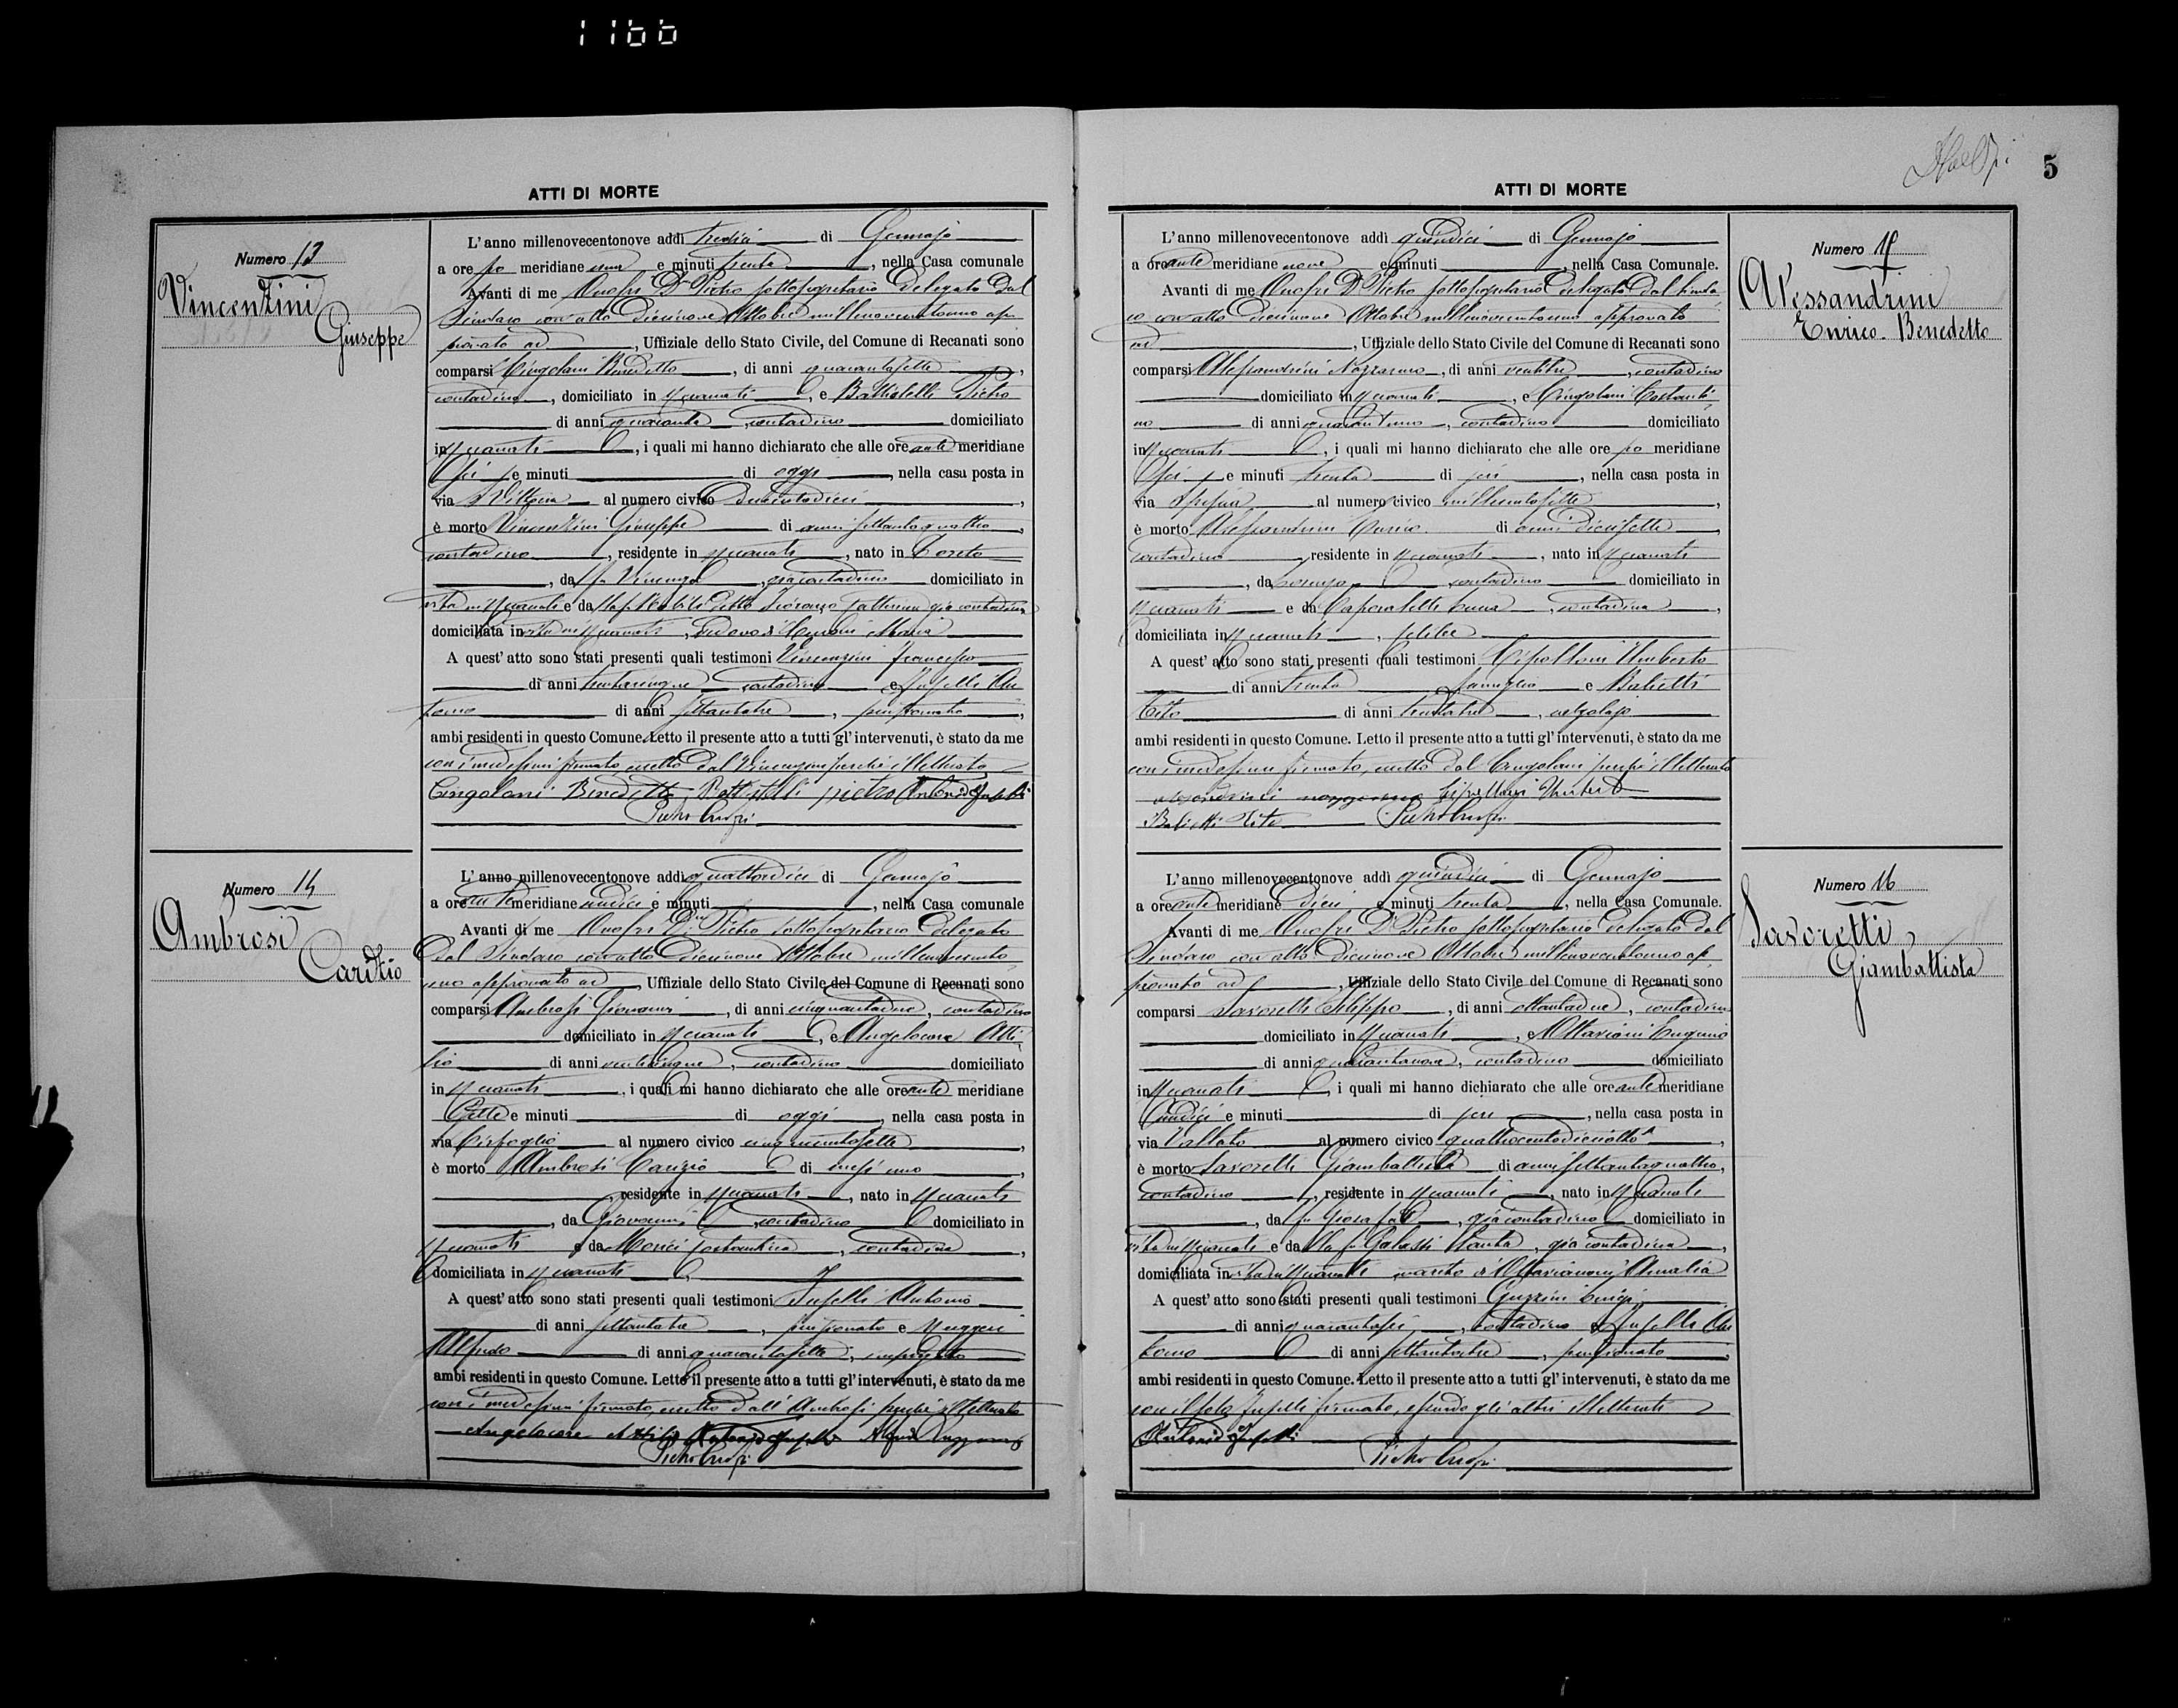 1166
ATTI DI MORTE
Numero 13
Vincenzini
Giuseppe
L'anno millenovecentonove addì tredici di Gennajo
a ore po meridiane una e minuti trenta, nella Casa comunale
Avanti di me Dr Pietro sottosegretario delegato dal
Sindaco con atto diecinove Ottobre millenovecentouno ap
provato ad, Uffiziale dello Stato Civile, del Comune di Recanati sono
comparsi Cingolani Benedetto, di anni quarantasette,
contadino, domiciliato in Recanati, e Battistelli Pietro
di anni quaranta, contadino domiciliato
in Recanati, i quali mi hanno dichiarato che alle ore ante meridiane
sei e minuti di oggi, nella casa posta in
via al numero civico duecentodieci,
è morto Vincenzini Giuseppe di anni settantaquattro,
contadino, residente in Recanati, nato in Loreto
, da fu Vincenzo, già contadino domiciliato in
vita in Recanati e da già contadina
domiciliata in vita in Recanati, vedovo di Maria
A quest'atto sono stati presenti quali testimoni Vincenzini Francesco
di anni trentacinque, contadino e An
tonio di anni settantatre, pensionato,
ambi residenti in questo Comune. Letto il presente atto a tutti gl'intervenuti, è stato da me
con i medesimi firmato, eccetto dal Vincenzini perchè illetterato
Cingolani Benedetto Battistelli pietro Antonio
Pietro
Numero 14
Ambrosi
Carizio
L'anno millenovecentonove addì quattordici di Gennajo
a ore ante meridiane undici e minuti, nella Casa comunale
Avanti di me Dr Pietro sottosegretario delegato
dal Sindaco con atto diecinove Ottobre millenovecento
uno approvato ad, Uffiziale dello Stato Civile del Comune di Recanati sono
comparsi Ambrosi Giovanni, di anni cinquantadue, contadino
domiciliato in Recanati, e Angelocore Atti
lio di anni venticinque, contadino domiciliato
in Recanati, i quali mi hanno dichiarato che alle ore ante meridiane
sette e minuti di oggi, nella casa posta in
via al numero civico cinquecentosette,
è morto Ambrosi Carizio di mesi uno,
, residente in Recanati, nato in Recanati
, da Giovanni, contadino domiciliato in
Recanati e da Costantina, contadina,
domiciliata in Recanati
A quest'atto sono stati presenti quali testimoni Antonio
di anni settantatre, pensionato e Ruggeri
Alfredo di anni quarantasette, impiegato
ambi residenti in questo Comune. Letto il presente atto a tutti gl'intervenuti, è stato da me
con i medesimi firmato, eccetto dall'Ambrosi perchè illetterato
Angelocore Attilio Antonio
Pietro
ATTI DI MORTE
5
Numero 15
Alessandrini
Enrico-Benedetto
L'anno millenovecentonove addì quindici di Gennajo
a ore ante meridiane nove e minuti, nella Casa Comunale.
Avanti di me Dr Pietro sottosegretario delegato dal Sinda
co con atto diecinove Ottobre millenovecentouno approvato
ad, Uffiziale dello Stato Civile del Comune di Recanati sono
comparsi Alessandrini Nazzareno, di anni ventitre, contadino
domiciliato in Recanati, e Cingolani Costanti
no di anni quarantuno, contadino domiciliato
in Recanati, i quali mi hanno dichiarato che alle ore po meridiane
sei e minuti trenta di jeri, nella casa posta in
via al numero civico millecentosette,
è morto Alessandrini Enrico di anni diecisette,
contadino, residente in Recanati, nato in Recanati
, da Lorenzo, contadino domiciliato in
Recanati e da, contadina,
domiciliata in Recanati, celibe
A quest'atto sono stati presenti quali testimoni Cipolloni Umberto
di anni trenta, famiglio e Balietti
Tito di anni trentatre, orologiajo
ambi residenti in questo Comune. Letto il presente atto a tutti gl'intervenuti, è stato da me
con i medesimi firmato, eccetto dal Cingolani perchè illetterato
alessandrini nazzareno Cipolloni Umberto
Balietti Tito Pietro
Numero 16
Savoretti
Giambattista
L'anno millenovecentonove addì quindici di Gennajo
a ore ante meridiane dieci e minuti trenta, nella Casa Comunale.
Avanti di me Dr Pietro sottosegretario delegato dal
Sindaco con atto diecinove Ottobre millenovecentouno ap
provato ad, Uffiziale dello Stato Civile del Comune di Recanati sono
comparsi Savoretti Filippo, di anni, contadino
domiciliato in Recanati, e Ottaviani Eugenio
di anni quarantanove, contadino domiciliato
in Recanati, i quali mi hanno dichiarato che alle ore ante meridiane
undici e minuti di jeri, nella casa posta in
via Vallato al numero civico quattrocentodieciotto,
è morto Savoretti Giambattista di anni settantaquattro,
contadino, residente in Recanati, nato in Recanati
, da fu Giosafat, già contadino domiciliato in
vita in Recanati e da la fu Galassi Santa, già contadina,
domiciliata in vita in Recanati marito di Amalia
A quest'atto sono stati presenti quali testimoni Guzzini Luigi
di anni quarantasei, contadino e An
tonio di anni settantatre, pensionato,
ambi residenti in questo Comune. Letto il presente atto a tutti gl'intervenuti, è stato da me
con il solo firmato, essendo gli altri illetterati
Antonio
Pietro